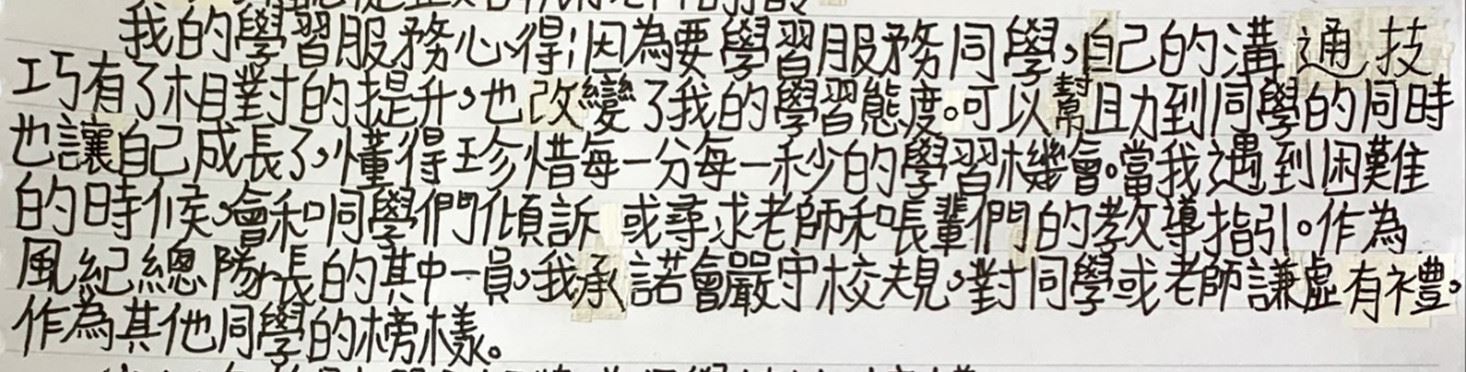 我的學習服務心得:因為要學習服務同學,自己的溝通技
巧有了相對的提升,也改變了我的學習態度。可以幫助到同學的同時
也讓自己成長了,懂得珍惜每一分每一秒的學習機會。當我遇到困難
的時候,會和同學們傾訴 或尋求老師和長輩們的教導指引。作為
風紀總隊長的其中一員,我承諾會嚴守校規,對同學或老師謙虛有禮,
作為其他同學的榜樣。